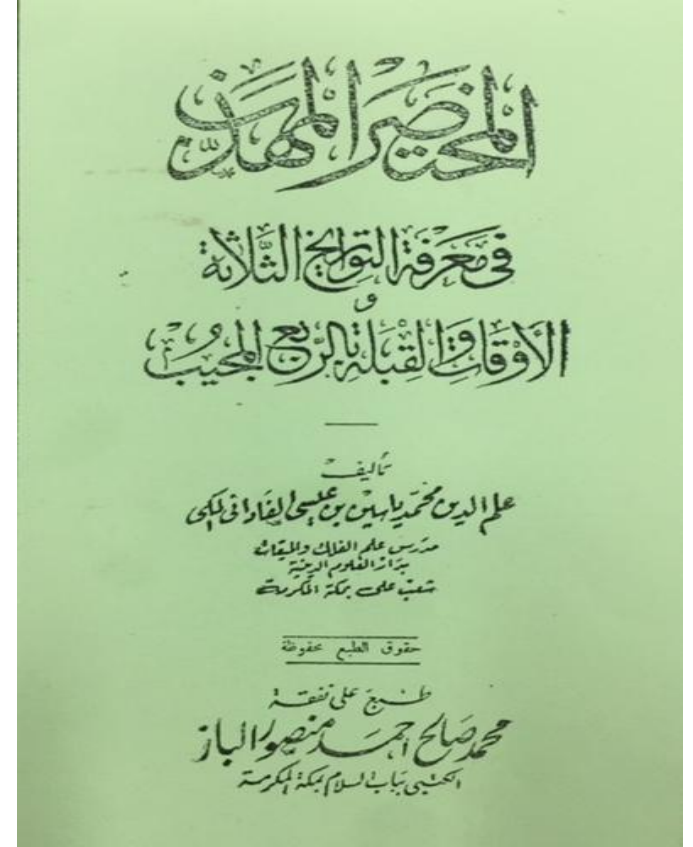 المختصر المهذب
فى معرفة التواريخ الثلاثة
و
الأوقات والقبلة بالربع المجيب
تأليف
علم الدين محمد ياسين بن عيسى الفادانى المكى
مدرس علم الفلك والميقات
بدار العلوم الدينية
شعب على بمكة المكرمة
حقوق الطبع محفوظة
طبع على نفقة
محمد صالح احمد منصور الباز
الكتبى بباب السلام بمكة المكرمة